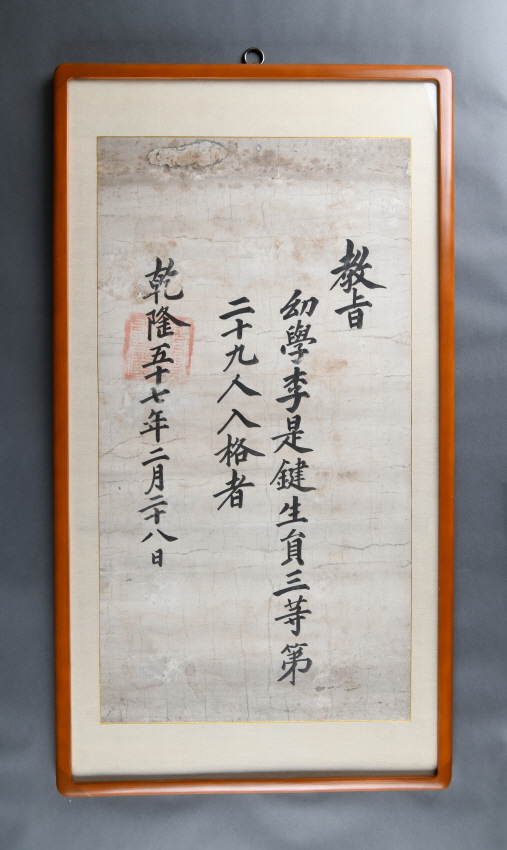 教旨
幼學李是鍵生員三等第
二十九人入格者
乾隆五十七年二月二十八日